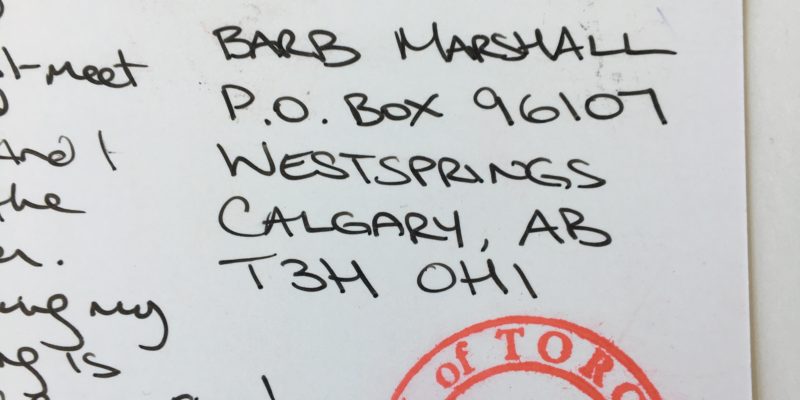 meet
and I
the
my
is
BARB MARSHALL
P.O. BOX 96107
WESTSPRINGS
CALGARY, AB
T3H 0H1
of TORO